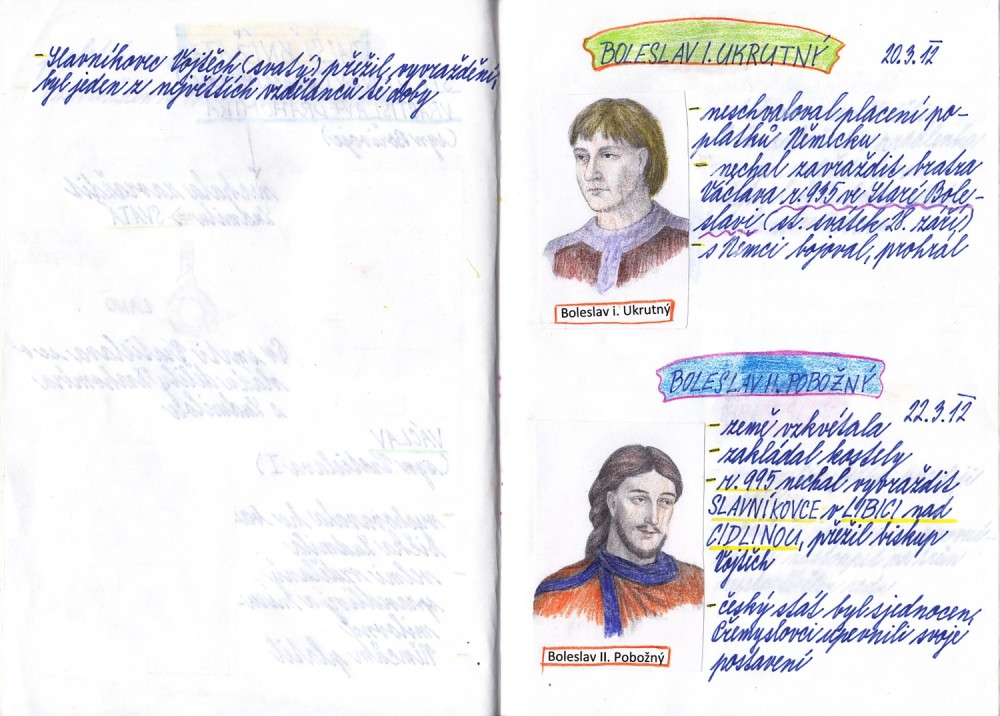 – Slavníkovec Vojtěch (svatý) přežil vyvraždění,
byl jeden z největších vzdělanců té doby
BOLESLAV I. UKRUTNÝ
20.3.12
– neschvaloval placení po-
platků Německu
– nechal zavraždit bratra
Václava r. 935 ve Staré Bole-
slavi (st. svátek 28. září)
– s Němci bojoval, prohrál
Boleslav i. Ukrutný
BOLESLAV II. POBOŽNÝ
22.3.12
– země vzkvétala
– zakládal kostely
– r. 995 nechal vybraždit
SLAVNÍKOVCE v LIBICI nad
CIDLINOU, přežil biskup
Vojtěch
– český stát byl sjednocen,
Přemyslovci upevnili svoje
postavení
Boleslav II. Pobožný